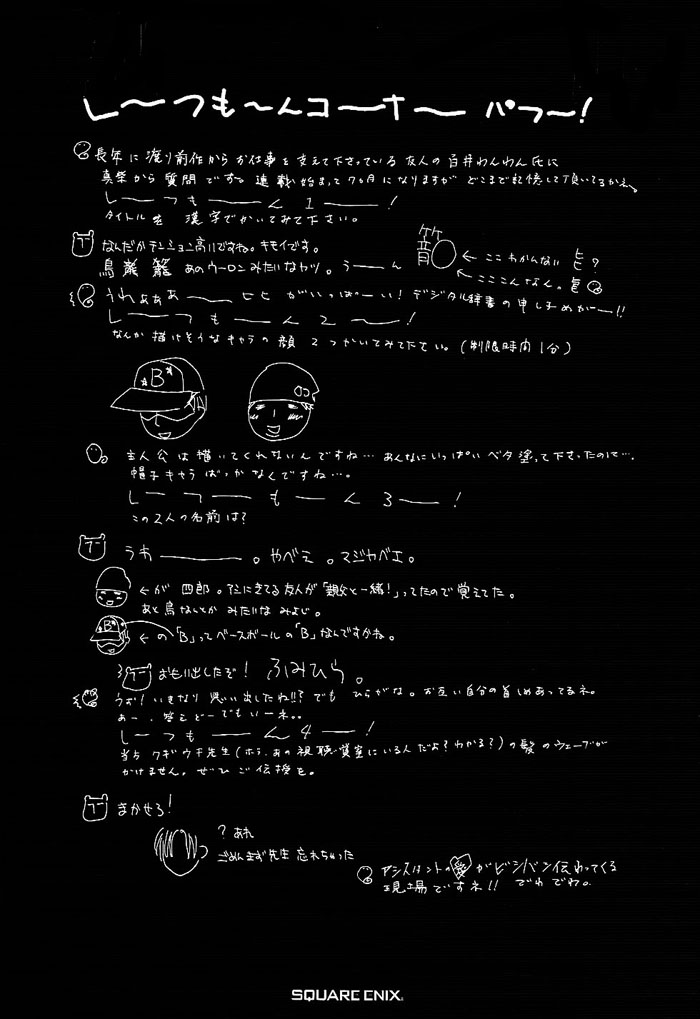 しーつもーんコーナー パフー!
長年に渡り前作からお仕事を支えて下さっている友人の白井わんわん氏に
真柴から質問です。連載始まって7ヵ月になりますがどこまで記憶して頂いてるかネ。
しーつもーん1ー!
タイトルを漢字でかいてみて下さい。
なんだかテンション高いですね。キモイです。
鳥 籠 あのウーロンみたいなヤツ。うーん
← ここわかんない ヒ?
← こここんなん。
うわぁぁぁーーヒヒ がいっぱーい!デジタル辞書の申し子めがー!!
しーつもーん2ー!
なんか描けそうなキャラの顔2つかいてみて下さい。(制限時間1分)
B
主人公は描いてくれないんですね…あんなにいっぱいベタ塗って下さったのに…。
帽子キャラばっかなんですね…。
しーつーもーん3ー!
この2人の名前は?
うわーー。やべえ。マジヤベエ。
←が 四郎。アシにきてる友人が「親父と一緒!」ってたので覚えてた。
あと鳥なんとかみたいなみよじ。
B
←の「B」ってベースボールの「B」なんですかね。
おもい出したぞ!ふみひら。
うお!いきなり思い出したね!!?でもひらがな。お互い自分の首しめあってるネ。
あー、答えどーでもいーネ。
しーつもーん4ー!
当方クギウチ先生(ホラ、あの視聴覚室にいる人だよ?わかる?)の髪のウェーブが
かけません。ぜひご伝授を。
まかせろ!
?あれ
ごめんまず先生忘れちゃった
アシスタントの愛がビシバシ伝わってくる
現場ですネ!! でわでわ。
SQUARE ENIX.